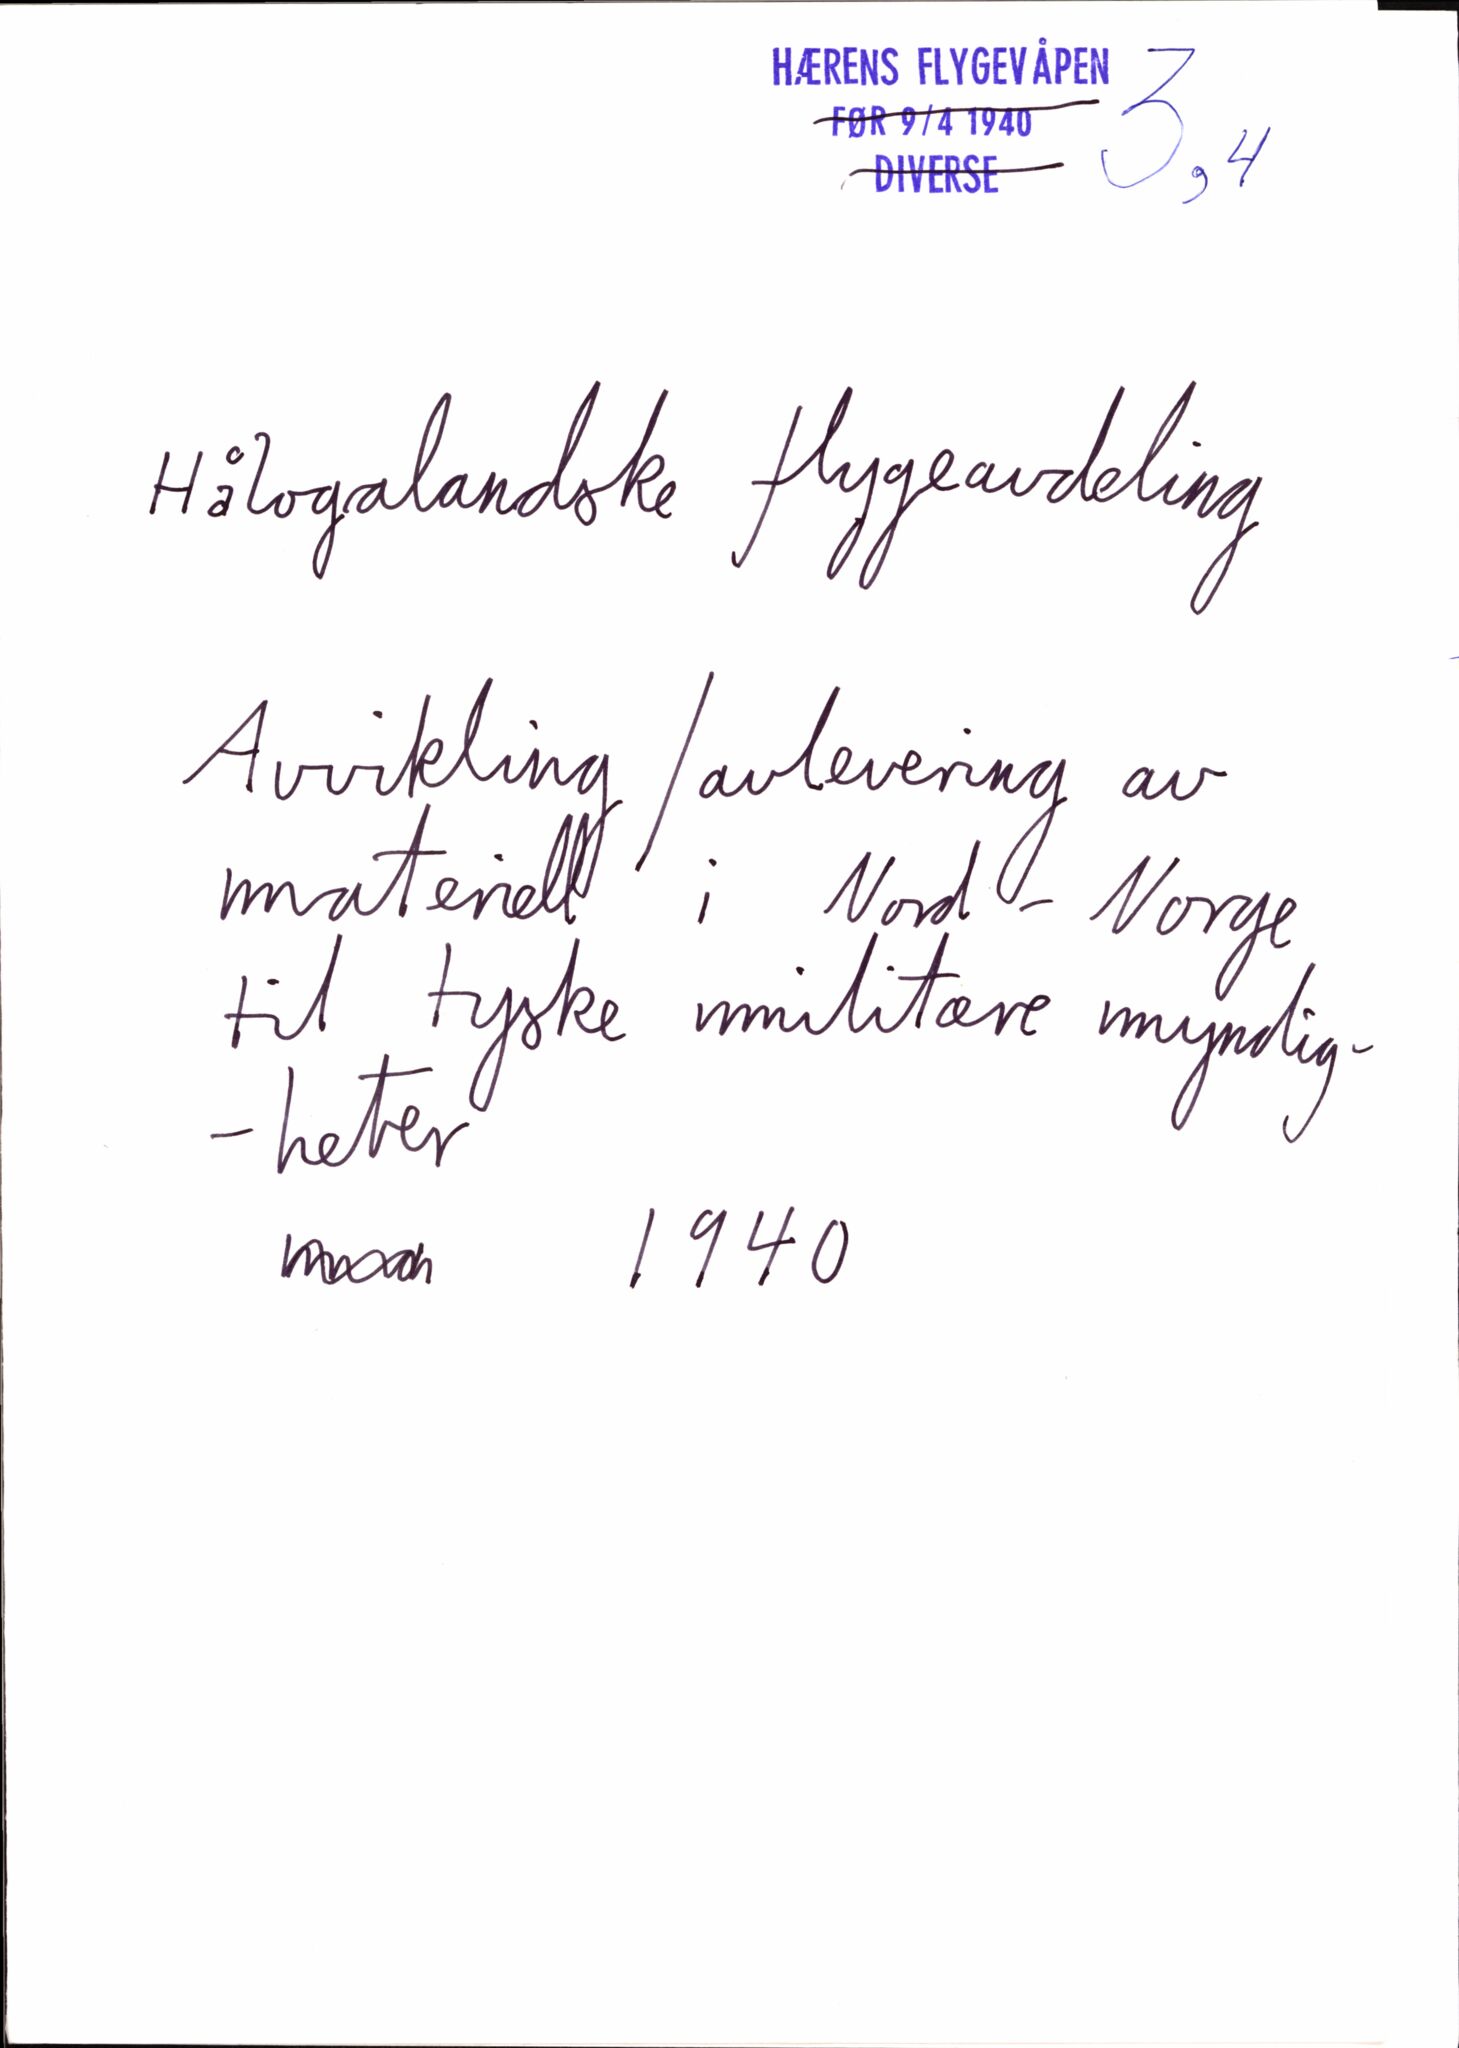 HÆRENS FLYGEVÅPEN
FØR 9/4 1940
DIVERSE
3,4
Hålogalandske flygeavdeling
Avvikling/avlevering av
materiell i Nord-Norge
til tyske militære myndig-
-heter
1940